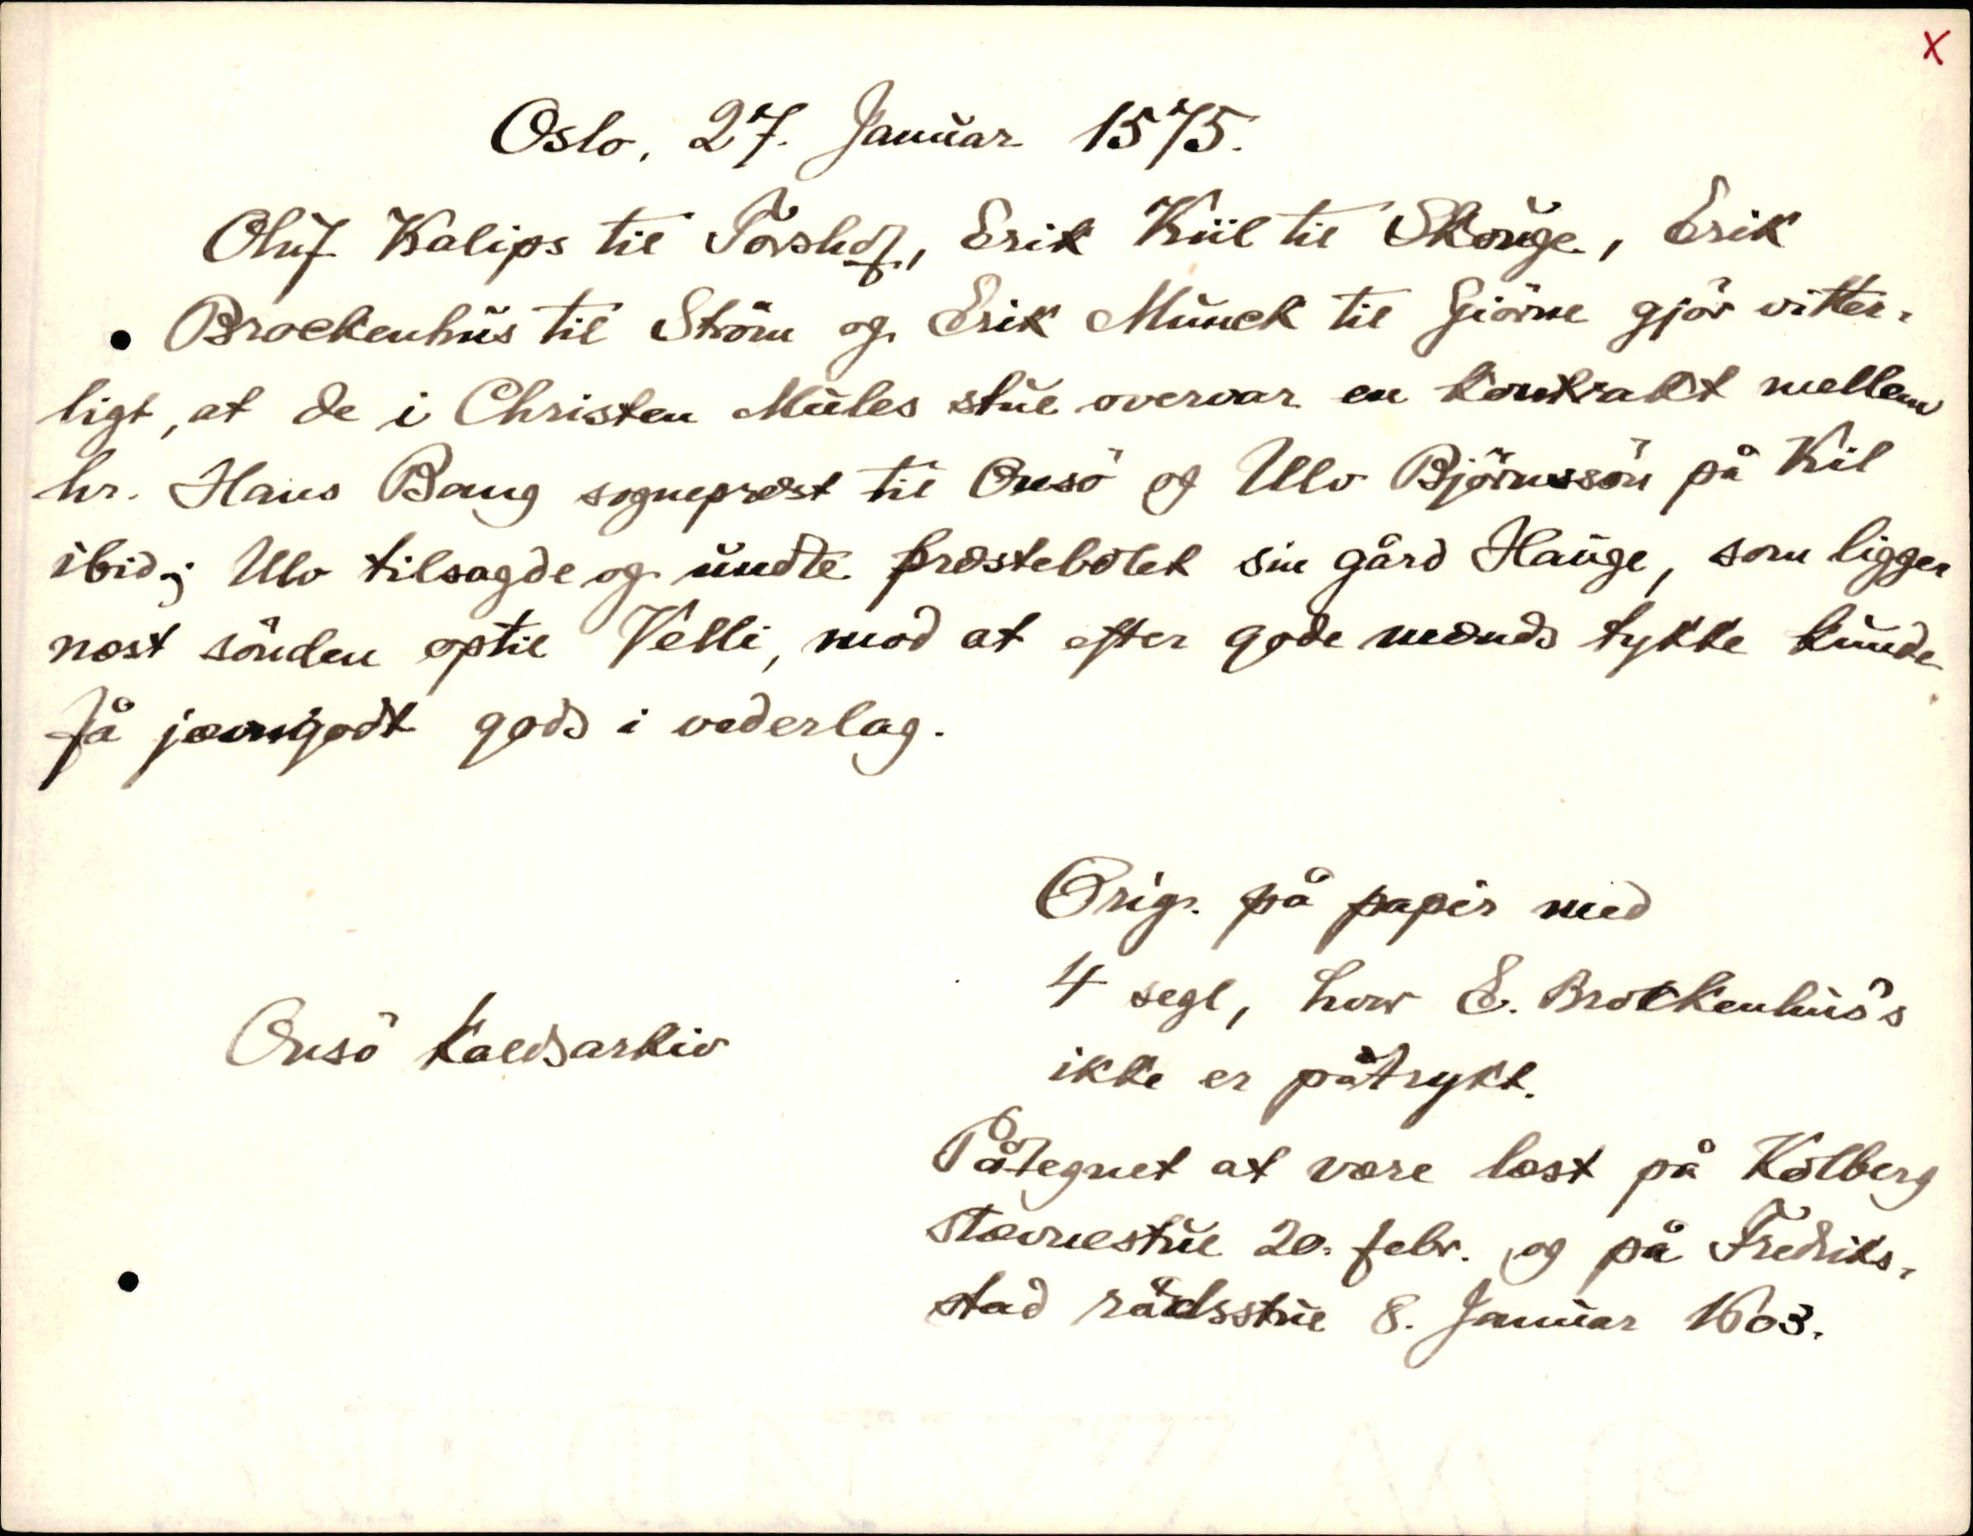 x
Oslo, 27. Januar 1575.
Oluf Kalips til Torshof, Erik Kiil til Skouge, Erik
Brockenhus til Ström og Erik Munck til Giörne gjör vitter-
ligt, at de i Christen Mules stue overvar en kontrakt mellem
hr. Hans Bang sogneprest til Onsö og Ulv Björnssön på Kil
ibid.; Ulv tilsagde og undte præstebolet sin gård Hauge, som ligger
næst sönden optil Velli, mod at efter gode mænds tykke kunde
få jævngodt gods i vederlag.
Orig. på papir med
4 segl, hvor E. Brockenhus's
ikke er påtrykt.
Onsö kaldsarkiv
Påtegnet at være læst på Kolberg
stævnestue 20. febr. og på Fredriks-
stad rådsstue 8. Januar 1603.